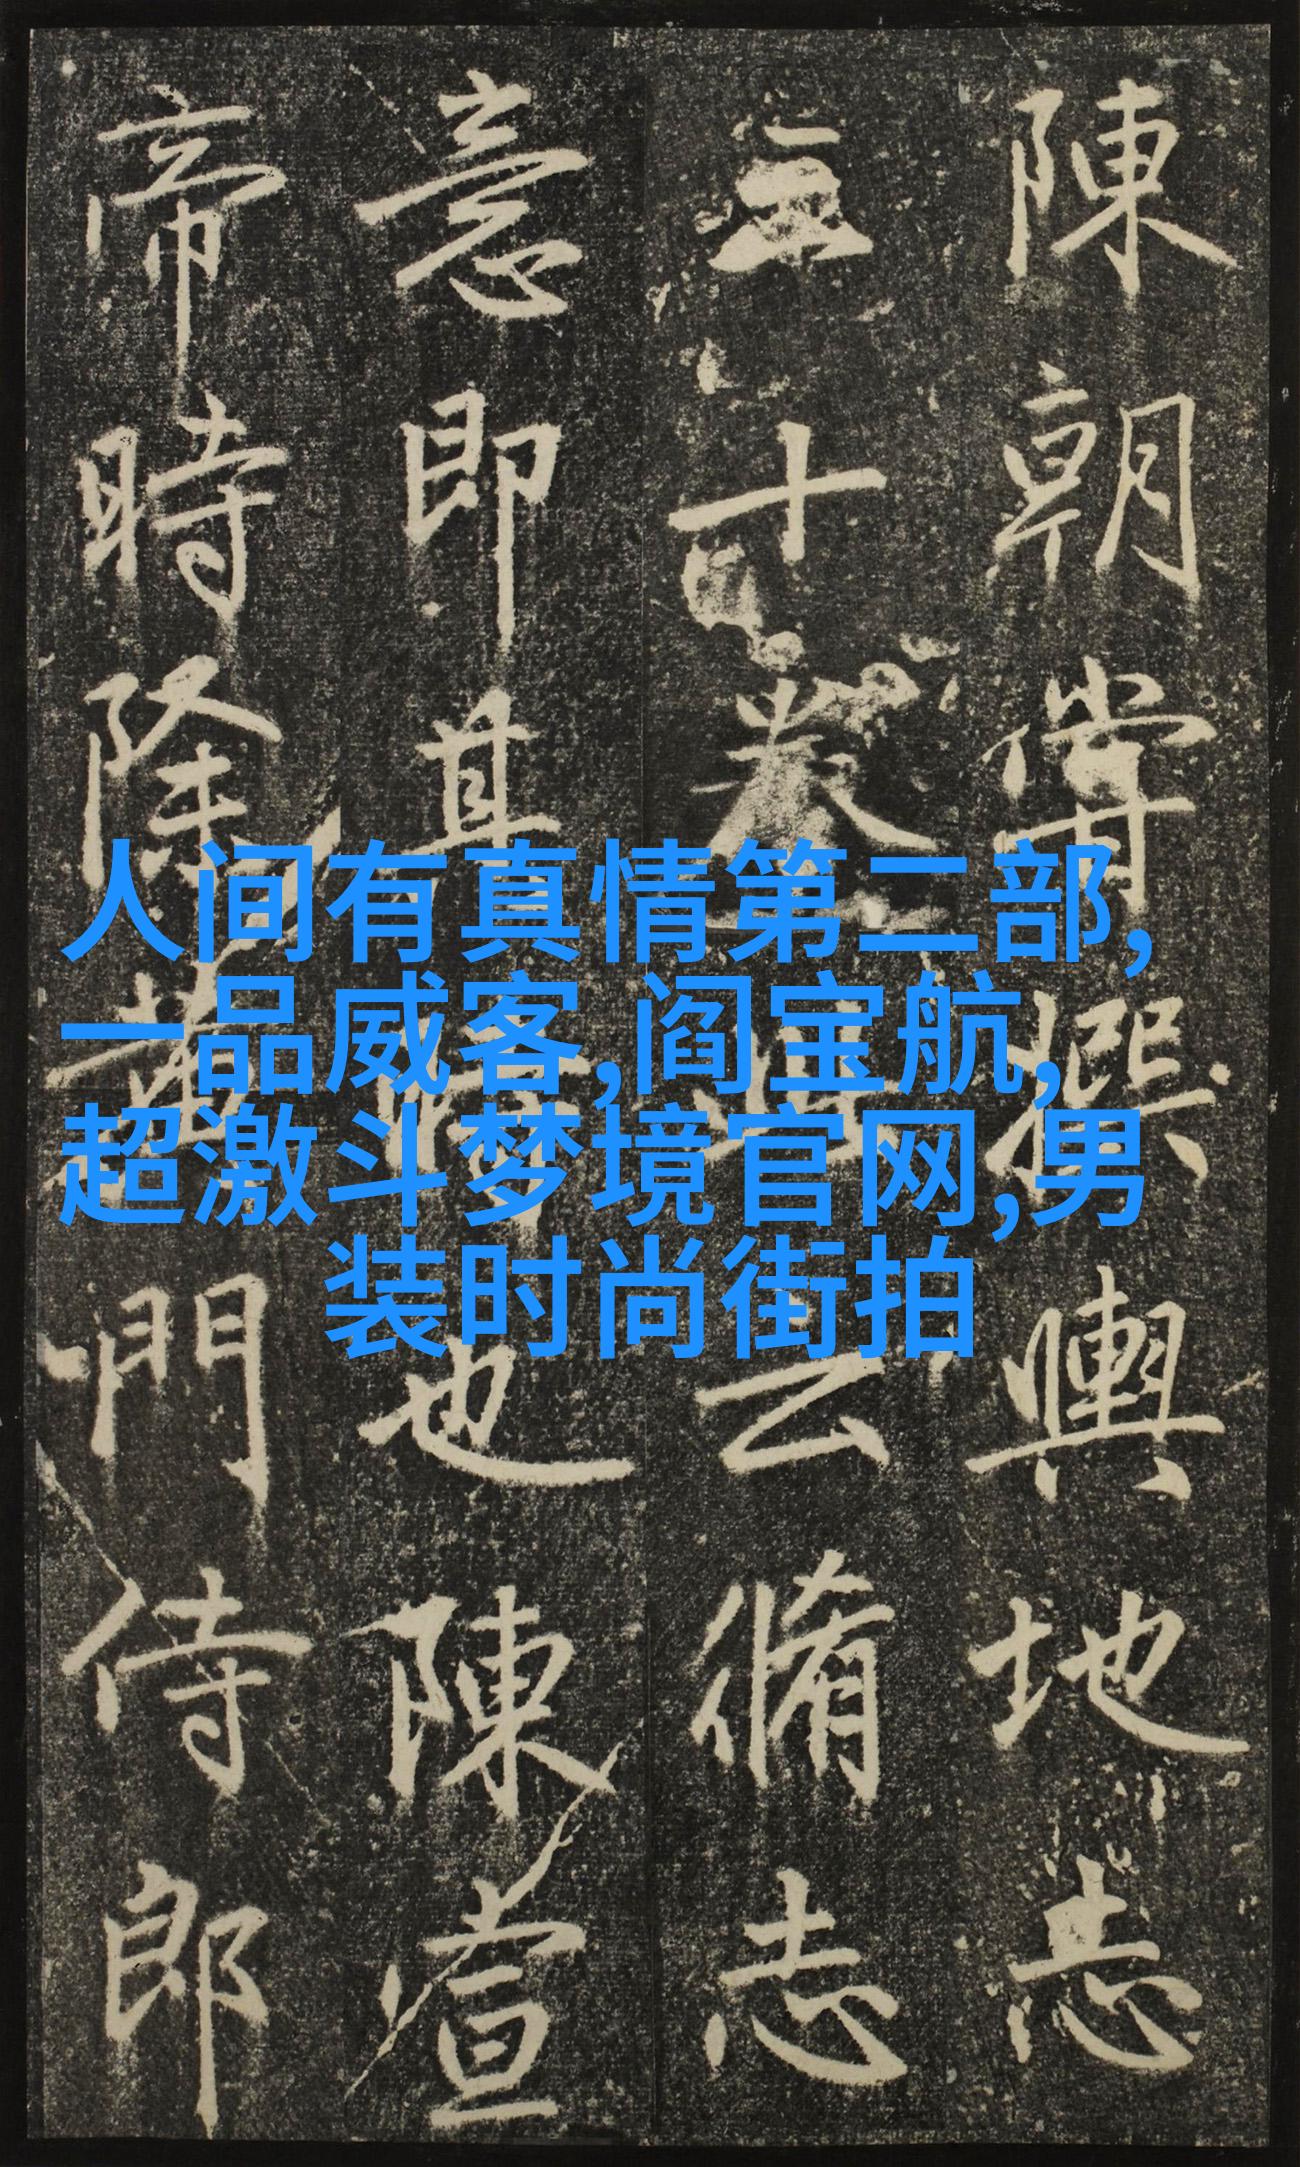 陳朝嘗撰輿地志
三十卷
云脩志
意即其
也陳宣
帝時除黃門侍郎
人间有真情第二部,
一品威客,阎宝航,
超激斗梦境官网,男
装时尚街拍